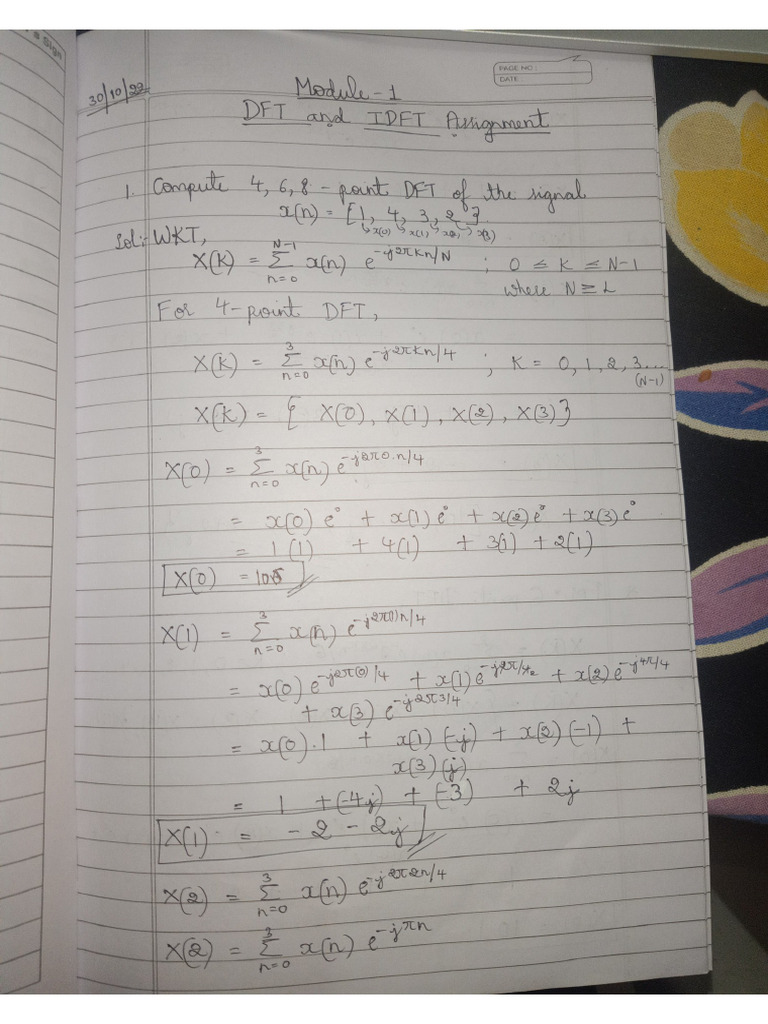 's Sign
PAGE NO :
DATE
30/10/22
Module-1
DFT and IDFT Assignment
1. Compute 4, 6, 8 - point DFT of the signal
x(n) = {1, 4, 3, 2}
x(0) x(1) x(2) x(3)
Sol:- WKT,
X(K) = Σ_{n=0}^{N-1} x(n) e^{-j2πKn/N} ; 0 ≤ K ≤ N-1
where N ≥ L
For 4-point DFT,
X(K) = Σ_{n=0}^{3} x(n) e^{-j2πKn/4} ; K = 0, 1, 2, 3...
(N-1)
X(K) = { X(0), X(1), X(2), X(3)}
X(0) = Σ_{n=0}^{3} x(n) e^{-j2π0.n/4}
= x(0) e° + x(1) e° + x(2) e° + x(3) e°
= 1(1) + 4(1) + 3(1) + 2(1)
X(0) = 10
X(1) = Σ_{n=0}^{3} x(n) e^{-j2π(1)n/4}
= x(0) e^{-j2π(0)/4} + x(1) e^{-j2π/4} + x(2) e^{-j4π/4}
+ x(3) e^{-j2π3/4}
= x(0).1 + x(1)(-j) + x(2)(-1) +
x(3)(j)
= 1 + (-4j) + (-3) + 2j
X(1) = -2 - 2j
X(2) = Σ_{n=0}^{3} x(n) e^{-j2π2n/4}
X(2) = Σ_{n=0}^{3} x(n) e^{-jπn}